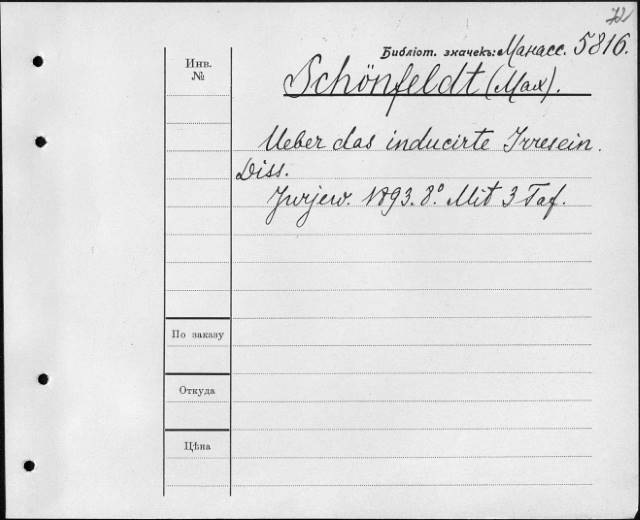 72
Библіот. значекъ: Манасс. 5816.
Инв. №
Schönfeldt (Max).
Ueber das inducirte Irresein.
Diss.
Jurjew. 1893. 8°. Mit 3 Taf.
По заказу
Откуда
Цѣна